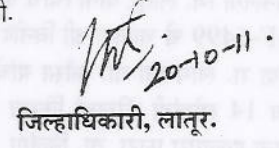 20-10-11.
जिल्हाधिकारी, लातूर.